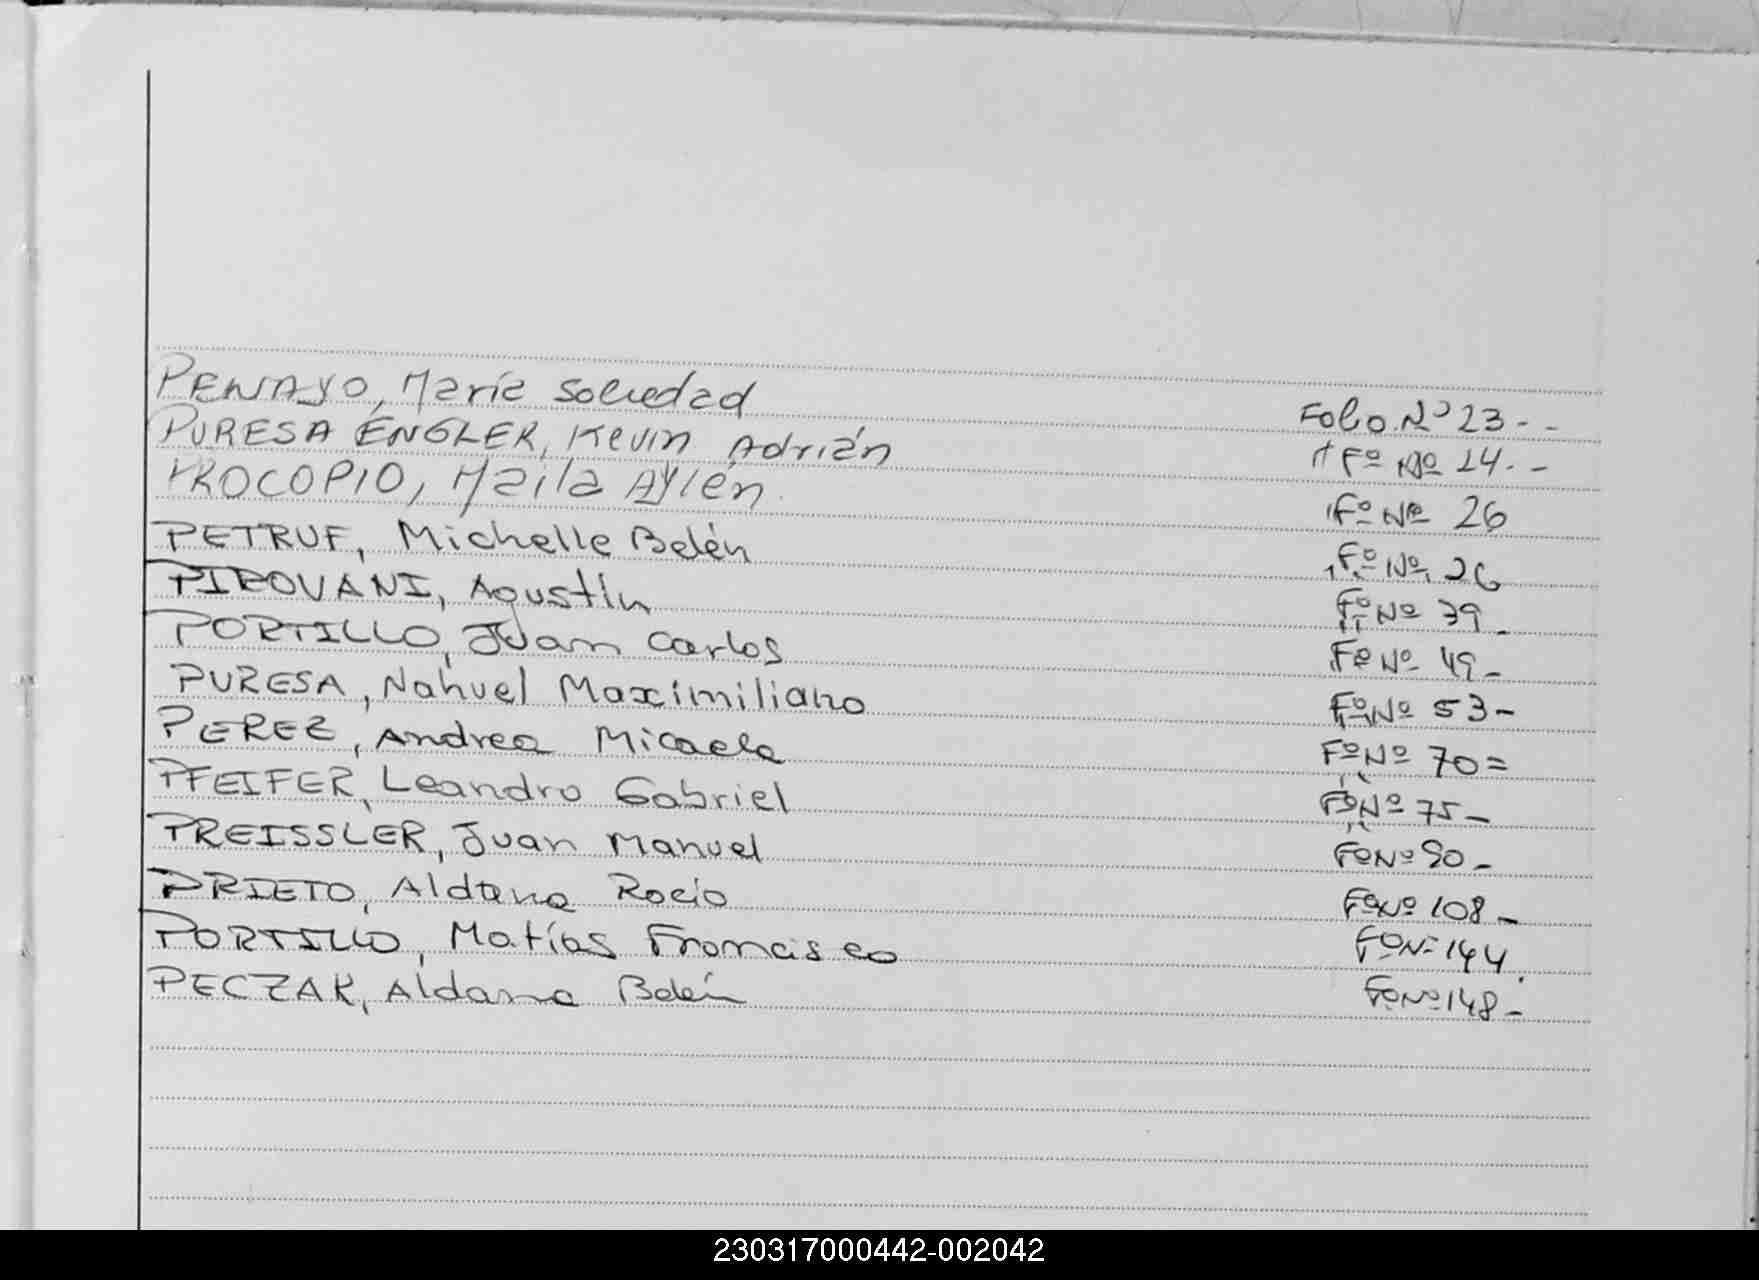 PENAYO, María Soledad Folio Nº 23 - -
PURESA ENGLER, Kevin Adrián Fº Nº 24 - -
PROCOPIO, Maila Aylén Fº Nº 26
PETRUF, Michelle Belén Fº Nº 26
PIROVANI, Agustín Fº Nº 39 -
PORTILLO, Juan Carlos Fº Nº 49 -
PURESA, Nahuel Maximiliano Fº Nº 53 -
PEREZ, Andrea Micaela Fº Nº 70 =
PFEIFER, Leandro Gabriel Fº Nº 75 -
PREISSLER, Juan Manuel Fº Nº 90 -
PRIETO, Aldana Rocío Fº Nº 108 -
PORTILLO, Matías Francisco Fº Nº 144
PECZAK, Aldana Belén Fº Nº 148 -
230317000442-002042